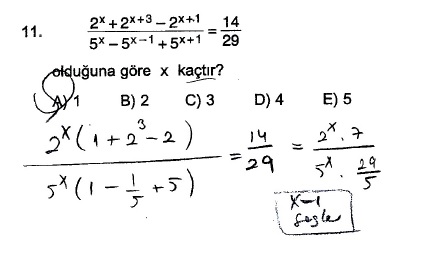 11. (2^x + 2^(x+3) − 2^(x+1)) / (5^x − 5^(x−1) + 5^(x+1)) = 14/29
olduğuna göre x kaçtır?
A) 1 B) 2 C) 3 D) 4 E) 5
2^x (1 + 2^3 − 2) / 5^x (1 − 1/5 + 5) = 14/29 = 2^x · 7 / 5^x · 29/5
x−1